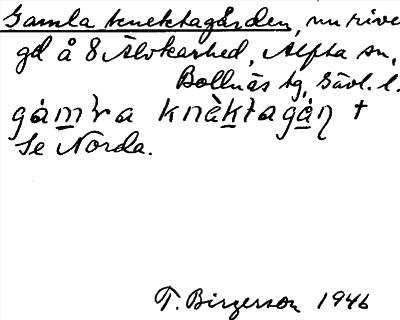 Gamla knektagården, nu rive
gd å 8 Älvkarhed, Alfta sn,
Bollnäs tg, Gävl. l.
gámra knèktagáṇ †
Se Norda.
T. Birgerson 1946